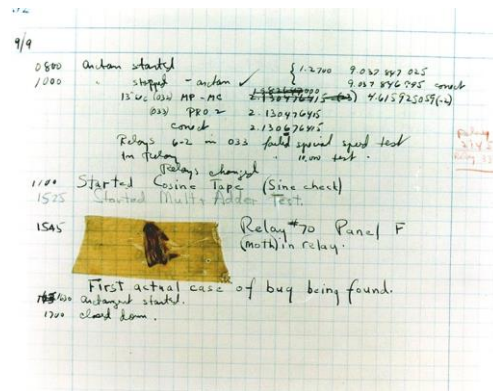 9/9
0800 Antan started
1000 " stopped - antan ✓ { 1.2700 9.037 847 025
9.037 846 995 conect
13"uc (032) MP-MC 2.130476415 (-3) 4.615925059(-2)
(033) PRO 2 2.130476415
conect 2.130676415
Relays 6-2 in 033 failed special speed test
In Relay " 10,000 test.
Relays changed
1100 Started Cosine Tape (Sine check)
1525 Started Multi Adder Test.
1545 Relay #70 Panel F
(moth) in relay.
First actual case of bug being found.
1630 antangent started.
1700 closed down.